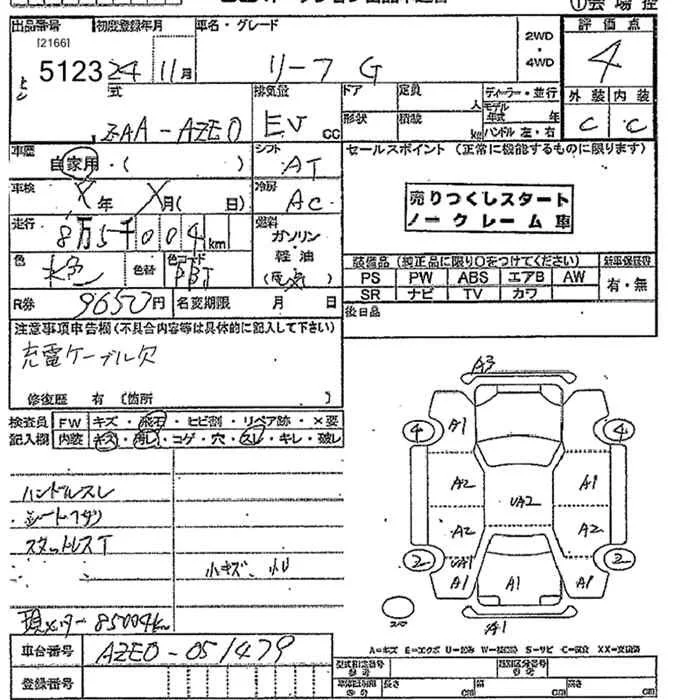 出品番号 初度登録年月 車名・グレード 2WD・4WD 評価点
[2166]
5123 24 11月 リーフ G 4
型式 排気量 ドア 定員 人 ディーラー・並行 外装 内装
ZAA-AZE0 EV cc 形状 積載 kg モデル年式 年 C C
ハンドル 左・右
車歴 シフト セールスポイント (正常に機能するものに限ります)
自家用・( ) AT
車検 年 月( 日) 冷房 AC
売りつくしスタート
ノークレーム車
走行 8万5千004km 燃料 ガソリン・軽油
色 色替 色コード
装備品 (純正品に限り○をつけてください) 新車保証書
PS PW ABS エアB AW 有・無
SR ナビ TV カワ
R券 9650円 名変期限 月 日
後日品
注意事項申告欄(不具合内容等は具体的に記入して下さい)
充電ケーブル欠
修復歴 有 〔箇所 〕
検査員 FW キズ・飛石・ヒビ割・リペア跡・X要
記入欄 内装 キズ・汚レ・コゲ・穴・スレ・キレ・破レ
ハンドルスレ
スタットレスT
小キズ、凹
現メーター85004km
A3
4 A1 4
A2 UA2 A1
A2 A2
2 UA1 2
A1 A1 A1
A1
A=キズ E=エクボ U=凹み W=補修跡 S=サビ C=腐食 XX=交換済
車台番号 AZE0-051479
登録番号
型式指定番号 類別区分番号
長さ cm 幅 cm 高さ cm